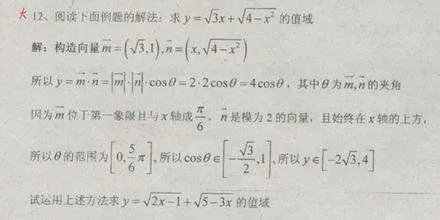 12、阅读下面例题的解法：求 y = √3x + √(4−x²) 的值域
解：构造向量 m⃗ = (√3,1), n⃗ = (x, √(4−x²))
所以 y = m⃗ · n⃗ = |m⃗| · |n⃗| · cosθ = 2 · 2cosθ = 4cosθ，其中θ为 m⃗,n⃗ 的夹角
因为 m⃗ 位于第一象限且与 x 轴成 π/6，n⃗ 是模为 2 的向量，且始终在 x 轴的上方，
所以θ的范围为 [0, 5/6 π]，所以 cosθ ∈ [−√3/2, 1]，所以 y∈[−2√3,4]
试运用上述方法求 y = √(2x−1) + √(5−3x) 的值域